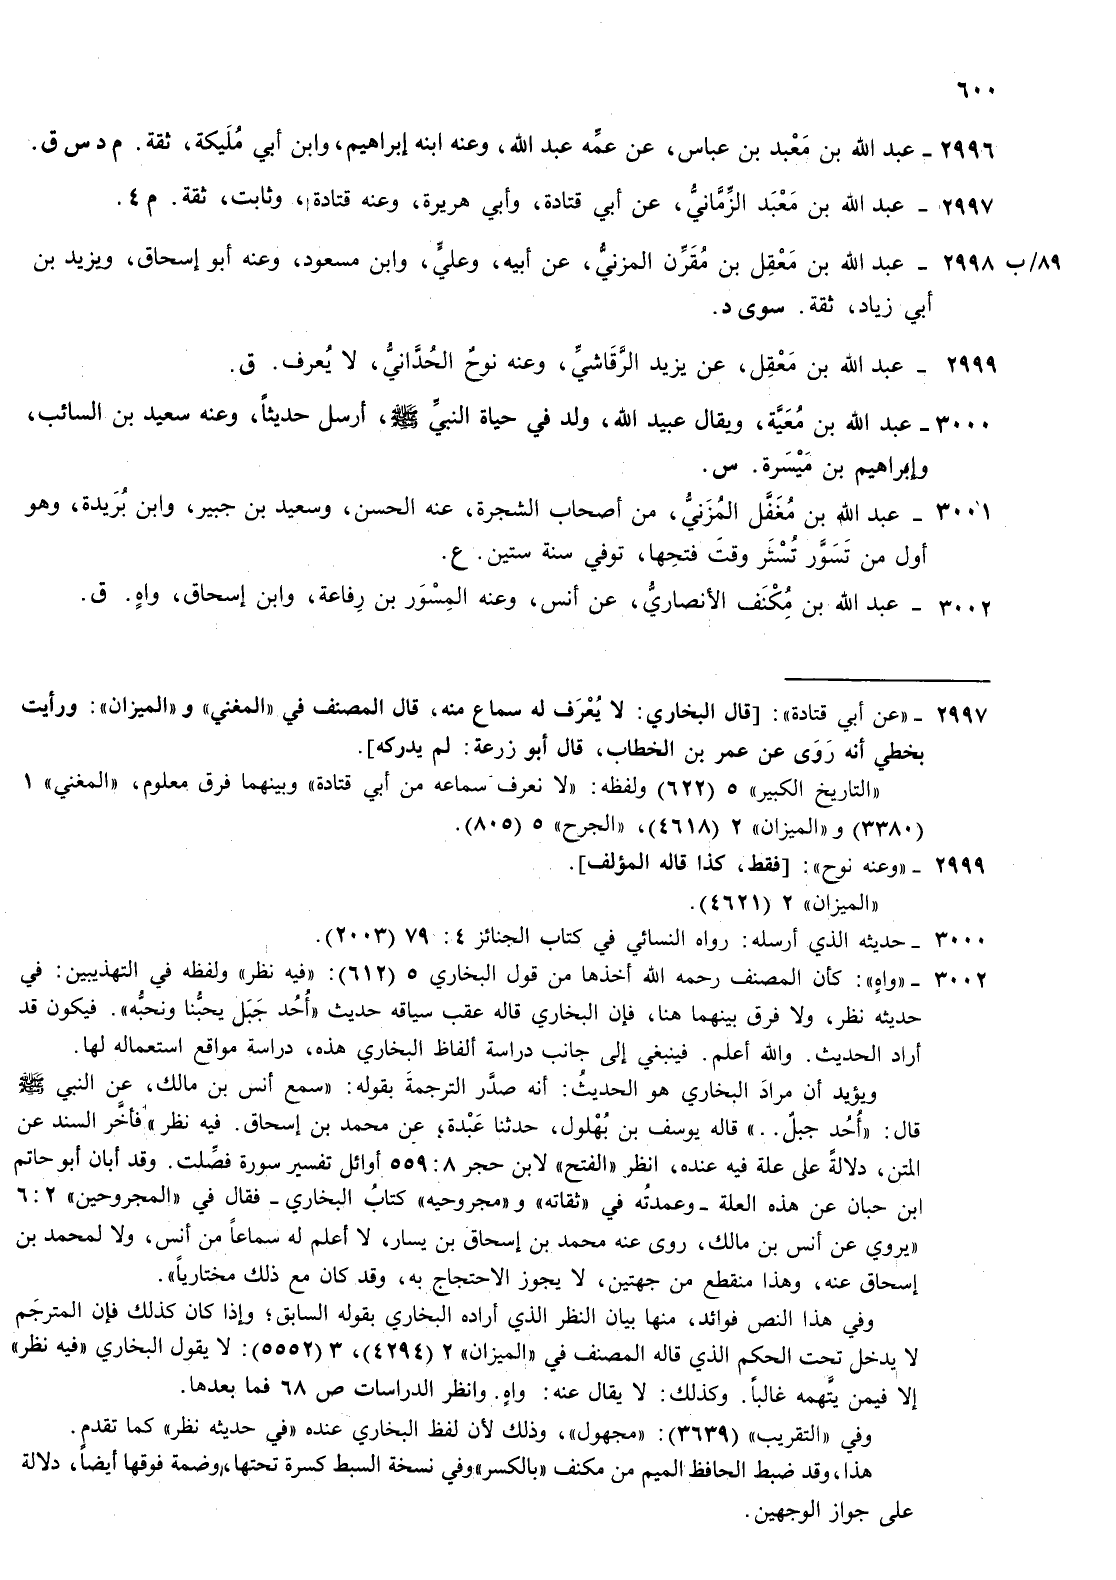 ٦٠٠
٢٩٩٦ ـ عبد الله بن مَعْبد بن عباس، عن عمِّه عبد الله، وعنه ابنه إبراهيم، وابن أبي مُلَيكة، ثقة. م د س ق.
٢٩٩٧ ـ عبد الله بن مَعْبَد الزِّمَّانيُّ، عن أبي قتادة، وأبي هريرة، وعنه قتادة، وثابت، ثقة. م ٤.
٨٩/ب ٢٩٩٨ ـ عبد الله بن مَعْقِل بن مُقَرِّن المزنيُّ، عن أبيه، وعليٍّ، وابن مسعود، وعنه أبو إسحاق، ويزيد بن
أبي زياد، ثقة. سوى د.
٢٩٩٩ ـ عبد الله بن مَعْقِل، عن يزيد الرَّقَاشيِّ، وعنه نوحٌ الحُدَّانيُّ، لا يُعرف. ق.
٣٠٠٠ ـ عبد الله بن مُعَيَّة، ويقال عبيد الله، ولد في حياة النبيِّ ﷺ، أرسل حديثاً، وعنه سعيد بن السائب،
وإبراهيم بن مَيْسَرة. س.
٣٠٠١ ـ عبد الله بن مُغَفَّل المُزَنيُّ، من أصحاب الشجرة، عنه الحسن، وسعيد بن جبير، وابن بُرَيدة، وهو
أول من تَسَوَّر تُسْتَر وقتَ فتحِها، توفي سنة ستين. ع.
٣٠٠٢ ـ عبد الله بن مِكْنَف الأنصاريُّ، عن أنس، وعنه المِسْوَر بن رِفاعة، وابن إسحاق، واهٍ. ق.
٢٩٩٧ ـ «عن أبي قتادة»: [قال البخاري: لا يُعْرَف له سماع منه، قال المصنف في «المغني» و «الميزان»: ورأيت
بخطي أنه رَوَى عن عمر بن الخطاب، قال أبو زرعة: لم يدركه].
«التاريخ الكبير» ٥ (٦٢٢) ولفظه: «لا نعرف سماعه من أبي قتادة» وبينهما فرق معلوم، «المغني» ١
(٣٣٨٠) و «الميزان» ٢ (٤٦١٨)، «الجرح» ٥ (٨٠٥).
٢٩٩٩ ـ «وعنه نوح»: [فقط، كذا قاله المؤلف].
«الميزان» ٢ (٤٦٢١).
٣٠٠٠ ـ حديثه الذي أرسله: رواه النسائي في كتاب الجنائز ٤: ٧٩ (٢٠٠٣).
٣٠٠٢ ـ «واهٍ»: كأن المصنف رحمه الله أخذها من قول البخاري ٥ (٦١٢): «فيه نظر» ولفظه في التهذيبين: في
حديثه نظر، ولا فرق بينهما هنا، فإن البخاري قاله عقب سياقه حديث «أُحُد جَبَل يحبُّنا ونحبُّه». فيكون قد
أراد الحديث. والله أعلم. فينبغي إلى جانب دراسة ألفاظ البخاري هذه، دراسة مواقع استعماله لها.
ويؤيد أن مرادَ البخاري هو الحديثُ: أنه صدَّر الترجمةَ بقوله: «سمع أنس بن مالك، عن النبي ﷺ
قال: «أُحُد جبلٌ..» قاله يوسف بن بُهْلول، حدثنا عَبْدة، عن محمد بن إسحاق. فيه نظر» فأخَّر السند عن
المتن، دلالةً على علة فيه عنده، انظر «الفتح» لابن حجر ٨: ٥٥٩ أوائل تفسير سورة فصِّلت. وقد أبان أبو حاتم
ابن حبان عن هذه العلة ـ وعمدتُه في «ثقاته» و «مجروحيه» كتابُ البخاري ـ فقال في «المجروحين» ٢: ٦
«يروي عن أنس بن مالك، روى عنه محمد بن إسحاق بن يسار، لا أعلم له سماعاً من أنس، ولا لمحمد بن
إسحاق عنه، وهذا منقطع من جهتين، لا يجوز الاحتجاج به، وقد كان مع ذلك مختارياً».
وفي هذا النص فوائد، منها بيان النظر الذي أراده البخاري بقوله السابق؛ وإذا كان كذلك فإن المترجَم
لا يدخل تحت الحكم الذي قاله المصنف في «الميزان» ٢ (٤٢٩٤)، ٣ (٥٥٥٢): لا يقول البخاري «فيه نظر»
إلا فيمن يتَّهمه غالباً. وكذلك: لا يقال عنه: واهٍ. وانظر الدراسات ص ٦٨ فما بعدها.
وفي «التقريب» (٣٦٣٩): «مجهول»، وذلك لأن لفظ البخاري عنده «في حديثه نظر» كما تقدم.
هذا، وقد ضبط الحافظ الميم من مكنف «بالكسر» وفي نسخة السبط كسرة تحتها، وضمة فوقها أيضاً، دلالة
على جواز الوجهين.